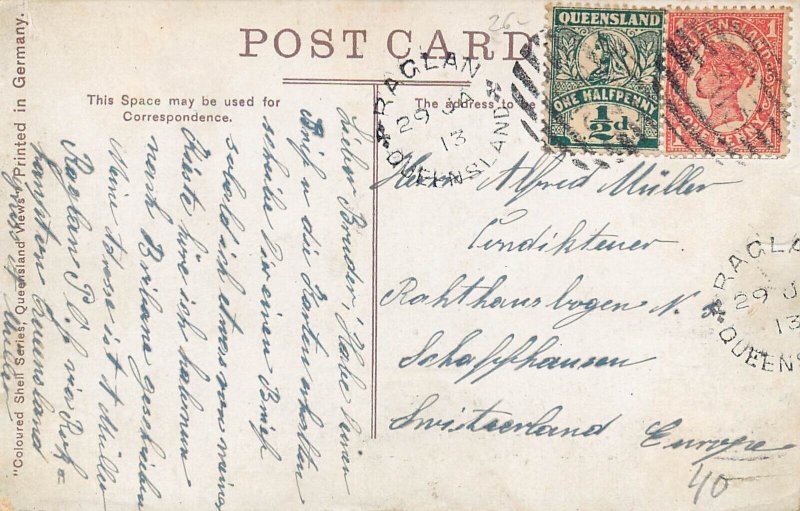 POST CARD
This Space may be used for
Correspondence.
The address to be
"Coloured Shell Series, Queensland Views" Printed in Germany.
QUEENSLAND
ONE HALFPENNY
½d
QUEENSLAND
1
ONE PENNY
RAGLAN
29 JA
13
QUEENSLAND
RAGL
29 J
13
QUEENS
26
Lieber Bruder, Habe deinen
Brief u die Karten erhalten
schreibe hier einen Brief
sobald ich etwas von meiner
Kiste höre ich habe nun
nach Brisbane geschrieben
Meine Adresse ist A Müller
Raglan P. O. via Rock-
hampton Queensland
Gruss
Herrn Alfred Müller
Conditoren
Rathhausbogen N.
Schaffhausen
Switzerland
Europe
40